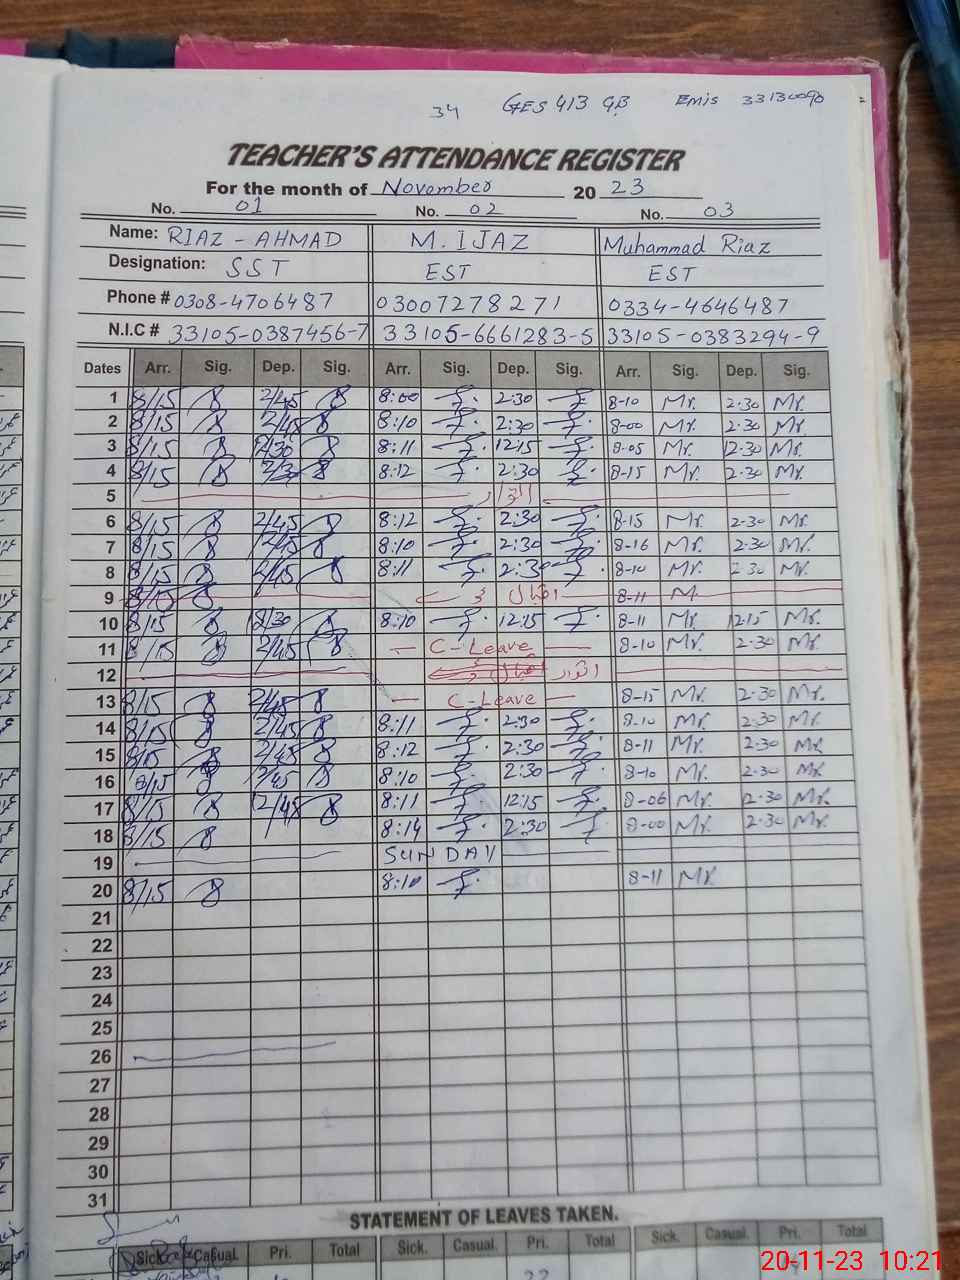 34 GES 413 GB Emis 33130090
TEACHER'S ATTENDANCE REGISTER
For the month of November 20 23
No. 01 No. 02 No. 03
Name: RIAZ - AHMAD M. IJAZ Muhammad Riaz
Designation: SST EST EST
Phone # 0308-4706487 03007278271 0334-4646487
N.I.C # 33105-0387456-7 33105-6661283-5 33105-0383294-9
Dates Arr. Sig. Dep. Sig. Arr. Sig. Dep. Sig. Arr. Sig. Dep. Sig.
1 8/15 2/45 8:00 2:30 8-10 Mr. 2-30 Mr.
2 8/15 2/45 8:10 2:30 8-00 Mr. 2-30 Mr.
3 8/15 12/30 8:11 12:15 8-05 Mr. 12-30 Mr.
4 8/15 2/30 8:12 2:30 8-15 Mr. 2-30 Mr.
5 اتوار
6 8/15 2/45 8:12 2:30 8-15 Mr. 2-30 Mr.
7 8/15 2/45 8:10 2:30 8-16 Mr. 2-30 Mr.
8 8/15 2/45 8:11 2:30 8-10 Mr. 2-30 Mr.
9 8/15 اقبال ڈے 8-11 M
10 8/15 12/30 8:10 12:15 8-11 Mr. 12-15 Mr.
11 8/15 2/45 C-Leave 8-10 Mr. 2-30 Mr.
12 اتوار
13 8/15 2/45 C-Leave 8-15 Mr. 2-30 Mr.
14 8/15 2/45 8:11 2:30 8-10 Mr. 2-30 Mr.
15 8/15 2/45 8:12 2:30 8-11 Mr. 2-30 Mr.
16 8/15 2/45 8:10 2:30 8-10 Mr. 2-30 Mr.
17 8/15 12/45 8:11 12:15 8-06 Mr. 2-30 Mr.
18 8/15 8:14 2:30 8-00 Mr. 2-30 Mr.
19 SUNDAY
20 8/15 8:10 8-11 Mr.
21
22
23
24
25
26
27
28
29
30
31
STATEMENT OF LEAVES TAKEN.
Sick. Casual. Pri. Total Sick. Casual. Pri. Total Sick. Casual. Pri. Total
20-11-23 10:21